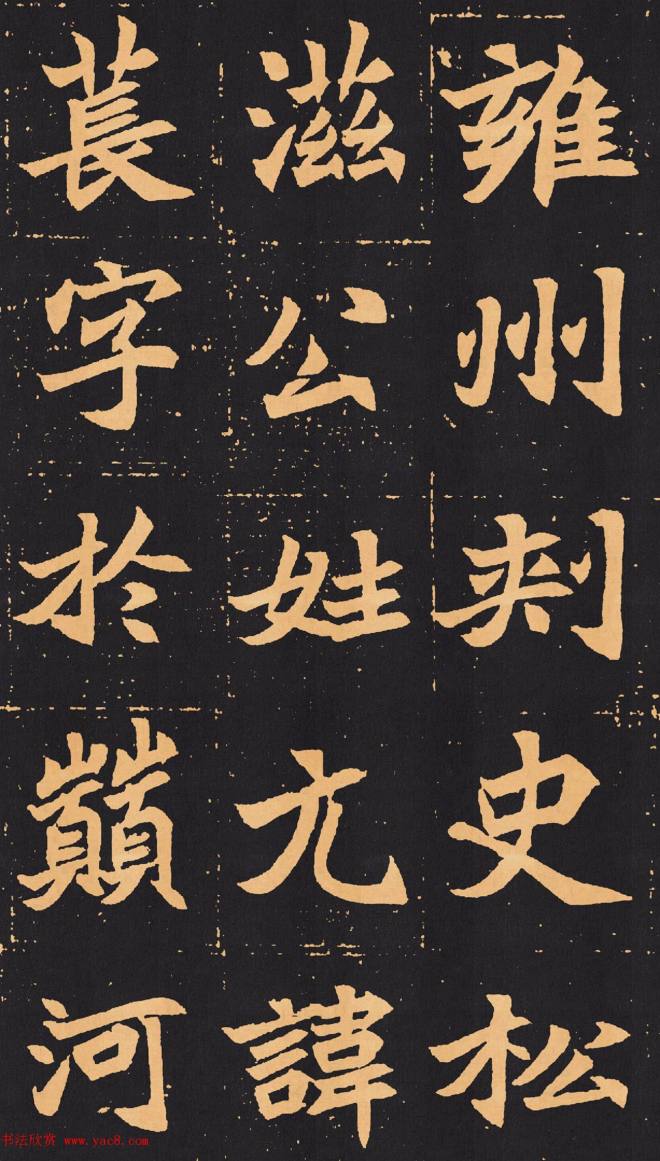 雍州刾史松
滋公姓亢諱
萇字於巔河
书法欣赏 www.yac8.com